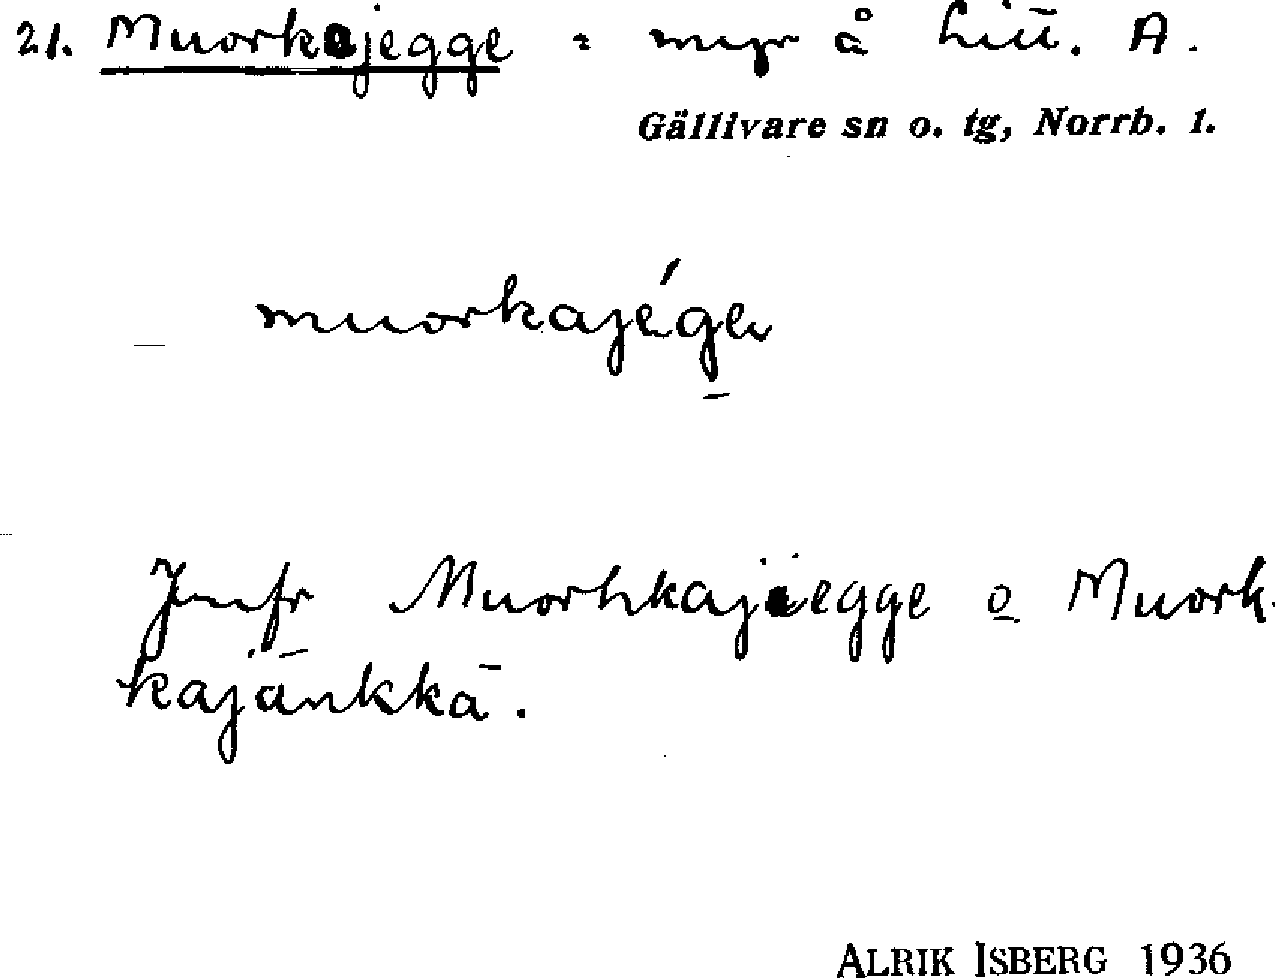 21. Muorkajegge = myr å Litt. A.
Gällivare sn o. tg, Norrb. l.
muorkajége
Jmfr Muorhkajiegge o Muork-
kajänkkä.
ALRIK ISBERG 1936